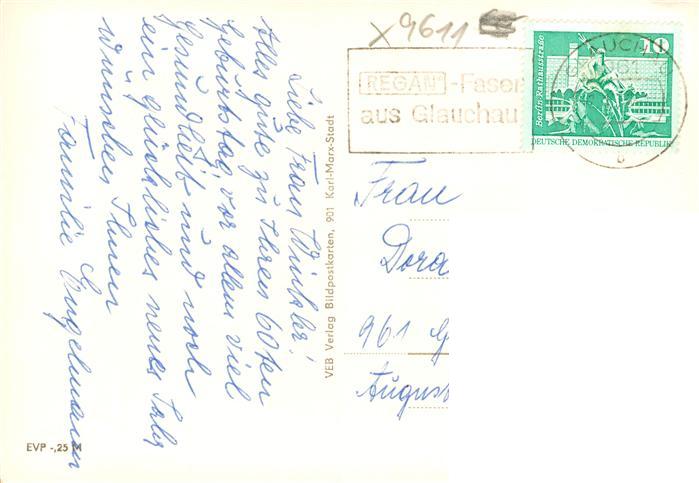 x 9611
REGAN -Faser
aus Glauchau
10
Berlin-Rathausstraße
DEUTSCHE DEMOKRATISCHE REPUBLIK
b
Liebe Frau Winkler!
Alles gute zu Ihren 60ten
Geburtstag, vor allem viel
Gesundheit und noch
ein glückliches neues Jahr
wünschen Ihnen
Familie Engelmann
VEB Verlag Bildpostkarten, 901 Karl-Marx-Stadt
Frau
Dora
961 G
August
EVP -,25 M